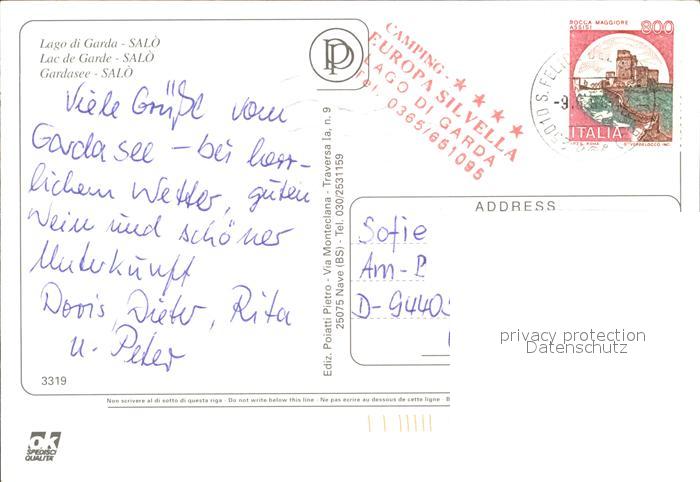 Lago di Garda - SALÒ
Lac de Garde - SALÒ
Gardasee - SALÒ
Viele Grüße vom
Gardasee – bei herr-
lichem Wetter, guten
Wein und schöner
Unterkunft
Doris, Dieter, Rita
u. Peter
3319
PP
CAMPING
EUROPA SILVELLA
LAGO DI GARDA
Tel. 0365/651095
ROCCA MAGGIORE
ASSISI
800
ITALIA
Ediz. Poiatti Pietro - Via Monteclana - Traversa Ia, n. 9
25075 Nave (BS) - Tel. 030/2531159
ADDRESS
Sofie
Am-
D-9440
privacy protection
Datenschutz
Non scrivere al di sotto di questa riga - Do not write below this line - Ne pas ecrire au dessous de cette ligne - B
ok
SPEDISCI
QUALITÀ